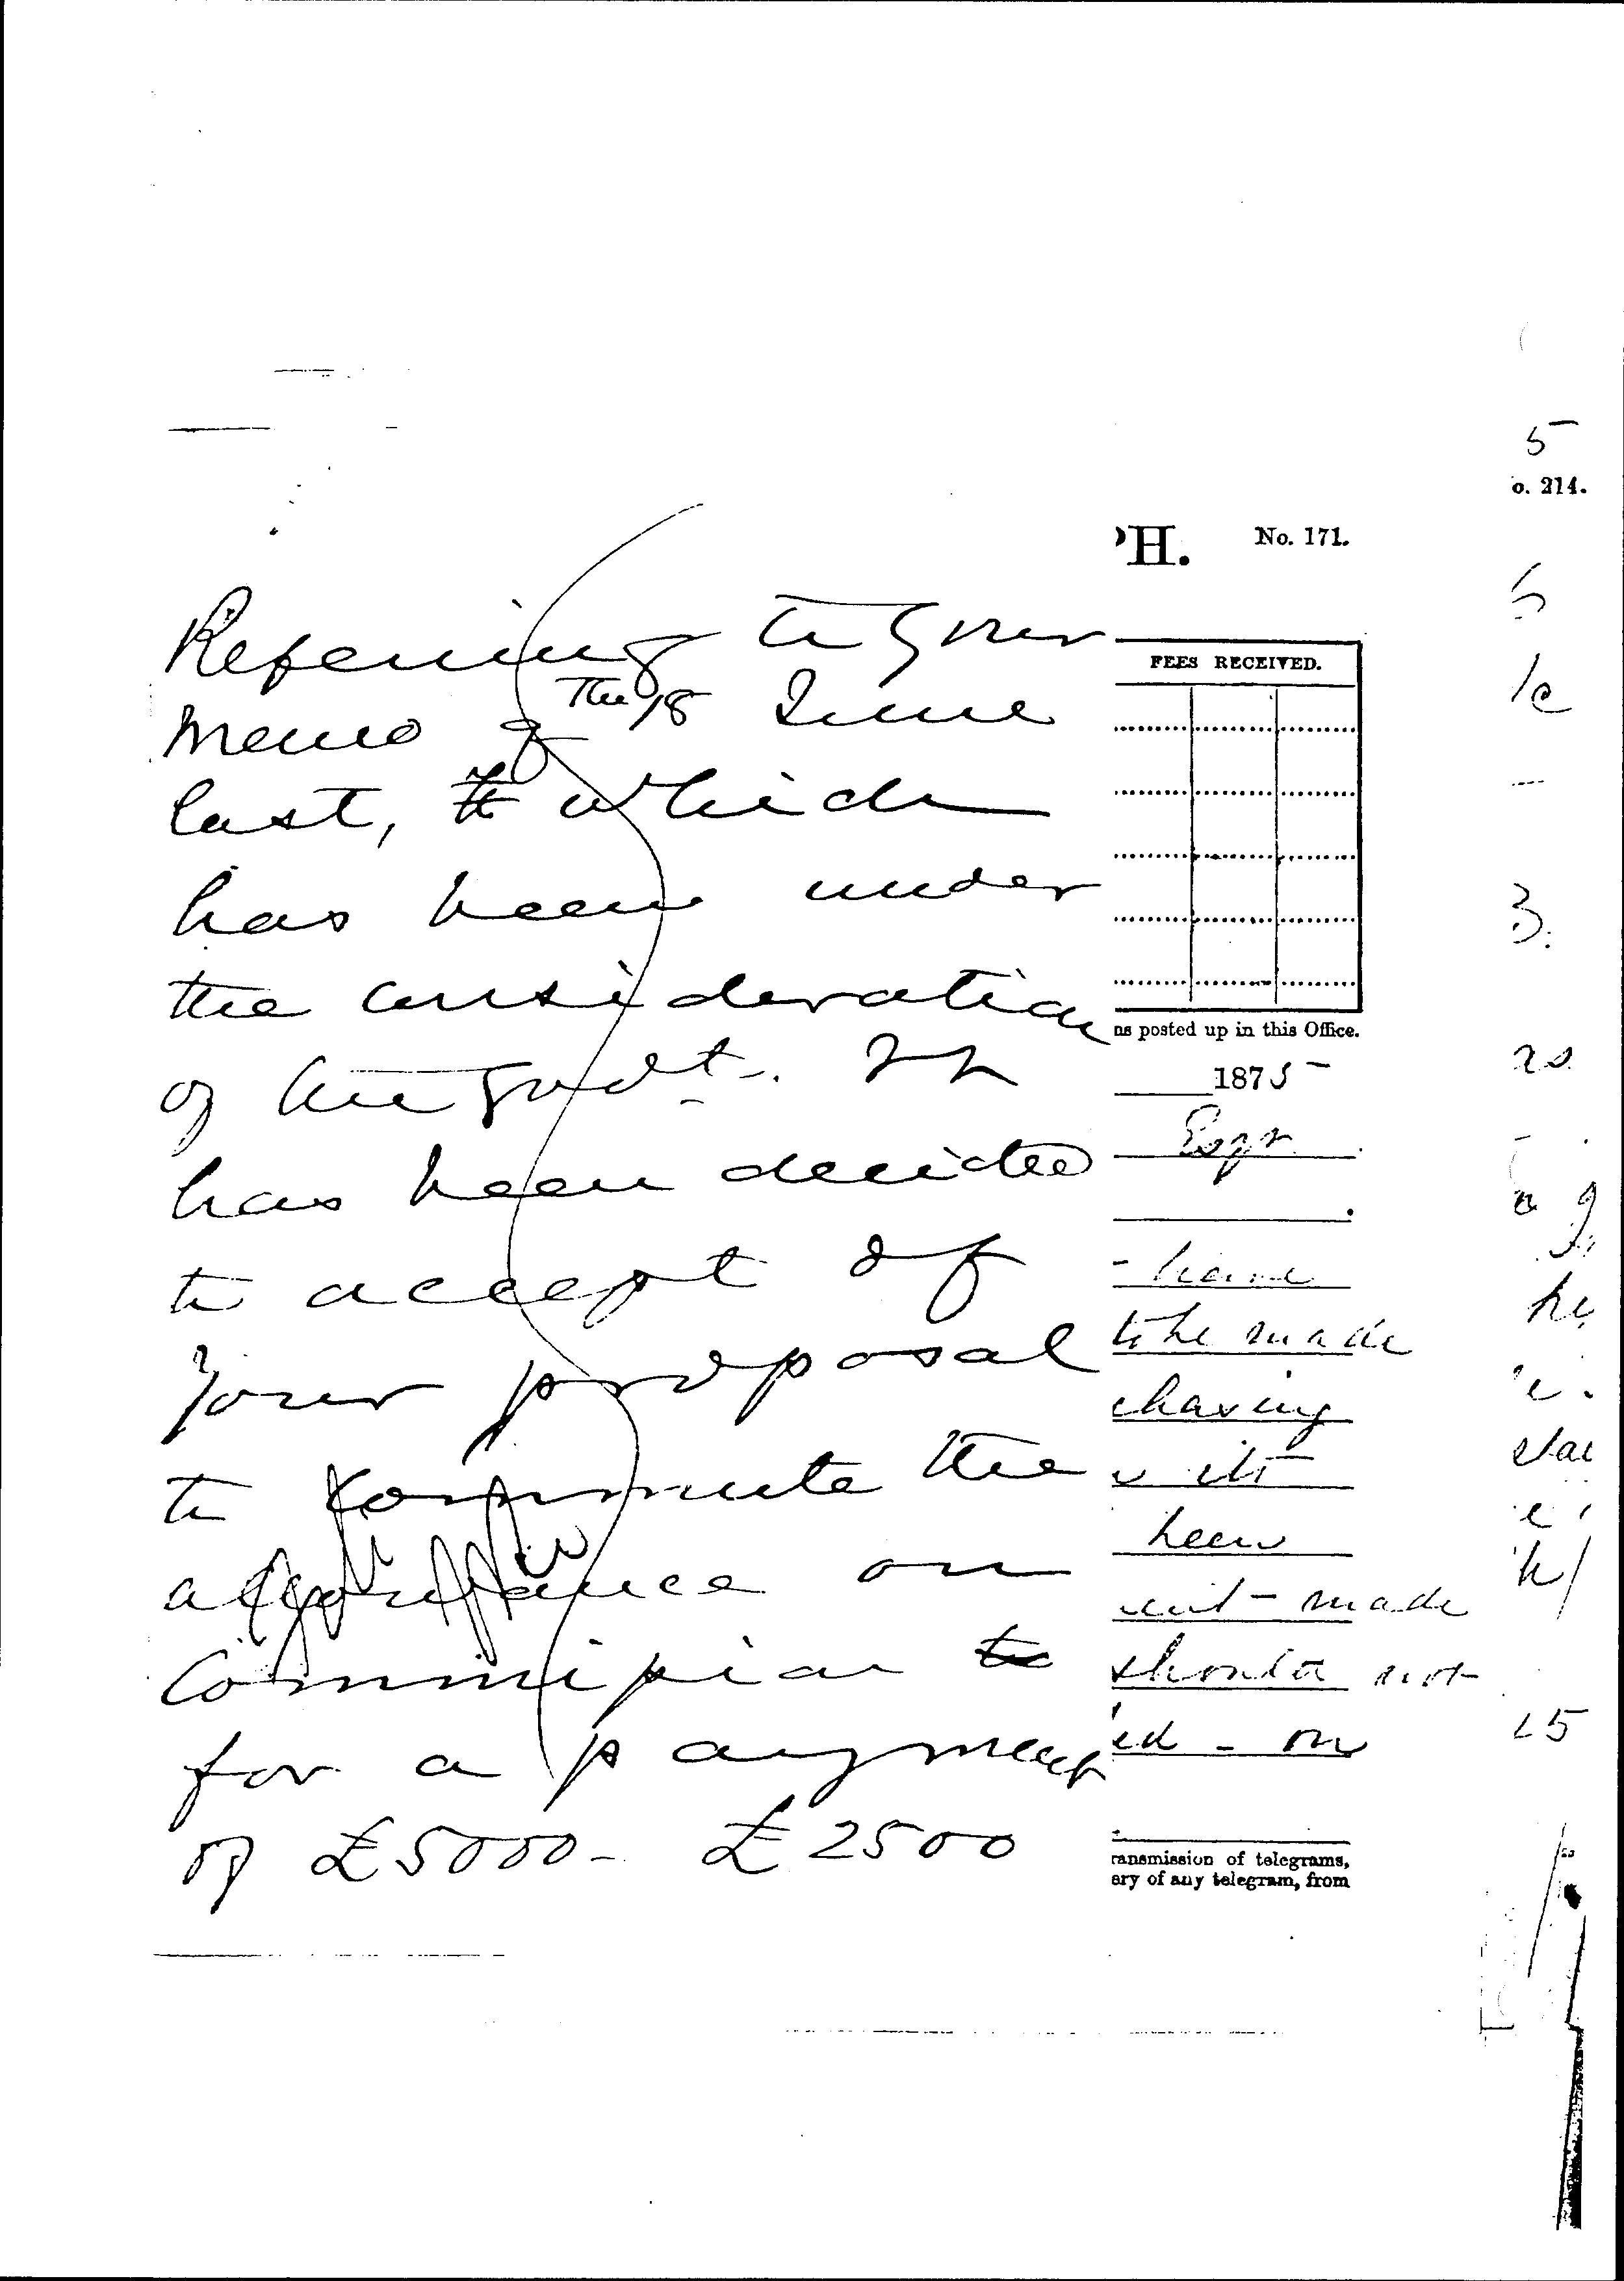 Referring to your
memo of The 18 June
last, which
has been under
the consideration
of the Govt. It
has been decided
to accept of
your proposal
to commute the
allowance on
Commission to
for a payment
of £5000 - £2500
PH. No. 171.
FEES RECEIVED.
ns posted up in this Office.
1875
Esqr
to be made
chasing
been
made
should not
ed - on
ransmission of telegrams,
ery of any telegram, from
5
o. 214.
3.
25